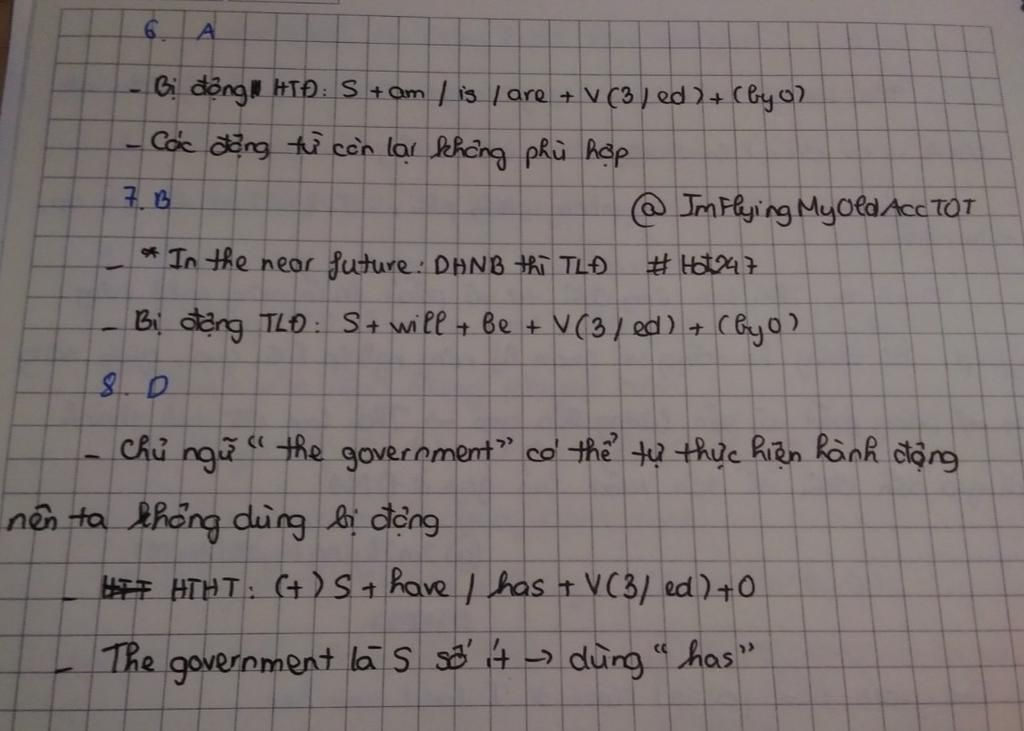 6. A
- Bị động HTĐ: S + am / is / are + V(3/ed) + (by O)
- Các động từ còn lại không phù hợp
7. B
@ ImFlyingMyOldAccTOT
- * In the near future: DHNB thì TLĐ # Hđ247
- Bị động TLĐ: S + will + be + V(3/ed) + (by O)
8. D
- Chủ ngữ "the government" có thể tự thực hiện hành động
nên ta không dùng bị động
- HTHT: (+) S + have / has + V(3/ed) + O
- The government là S số ít → dùng "has"